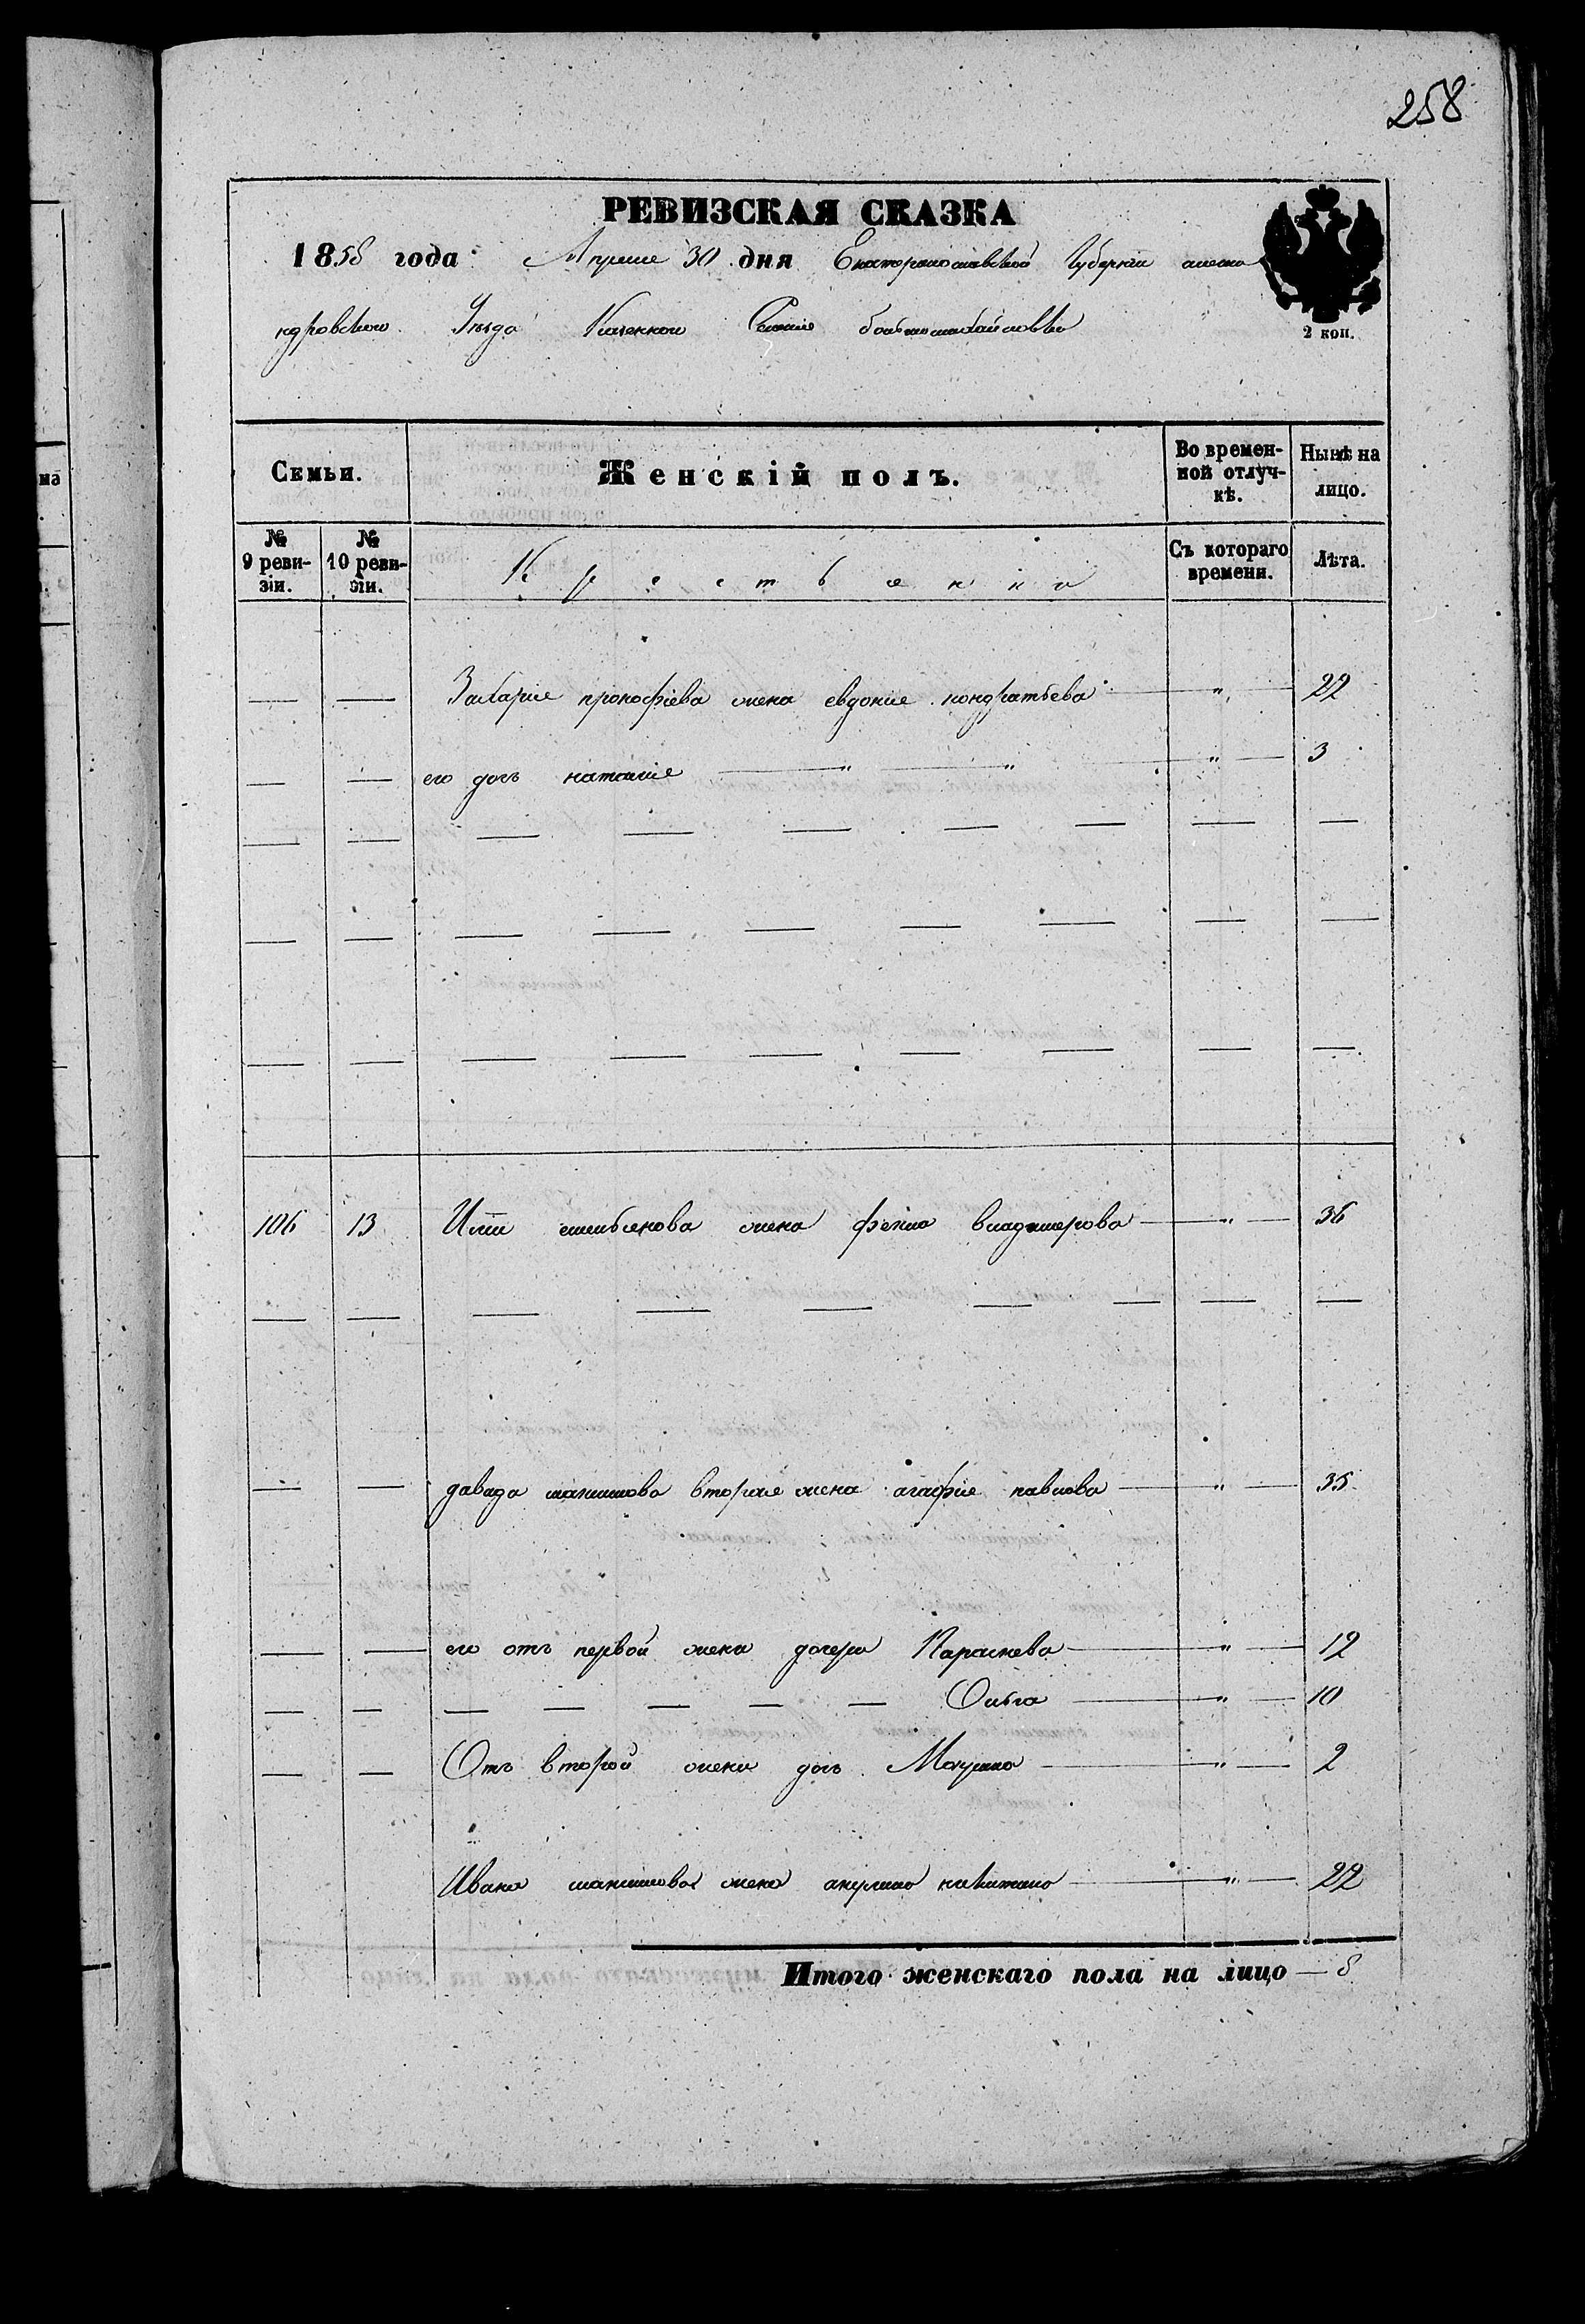 258
РЕВИЗСКАЯ СКАЗКА
1858 года Апреля 30 дня Екатеринославской Губернии алекса
ндровского Уезда Казенного Селения
2 коп.
Семьи. Женскій полъ. Во времен-ной отлуч-кѣ. Нынѣ на лицо.
№ 9 реви-зіи. № 10 реви-зіи. Съ котораго времени. Лѣта.
— — Захария прокофіева жена евдокие кондратьева — „ — 22
— — его дочь наталие — „ — „ — „ — 3
106 13 жена владимерова — „ — 36
— — давида второе жена агафие павлова — „ — 35
— — его отъ первой жени дочери Параскева — „ — 12
— — — — — — — Ольга — „ — 10
— — Отъ второй жени дочь — „ — 2
Ивана жена акулина никитина — „ — 22
Итого женскаго пола на лицо — 8